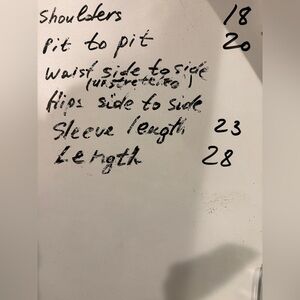 Shoulders 18
Pit to pit 20
Waist side to side
(unstretched)
Hips side to side
Sleeve length 23
Length 28